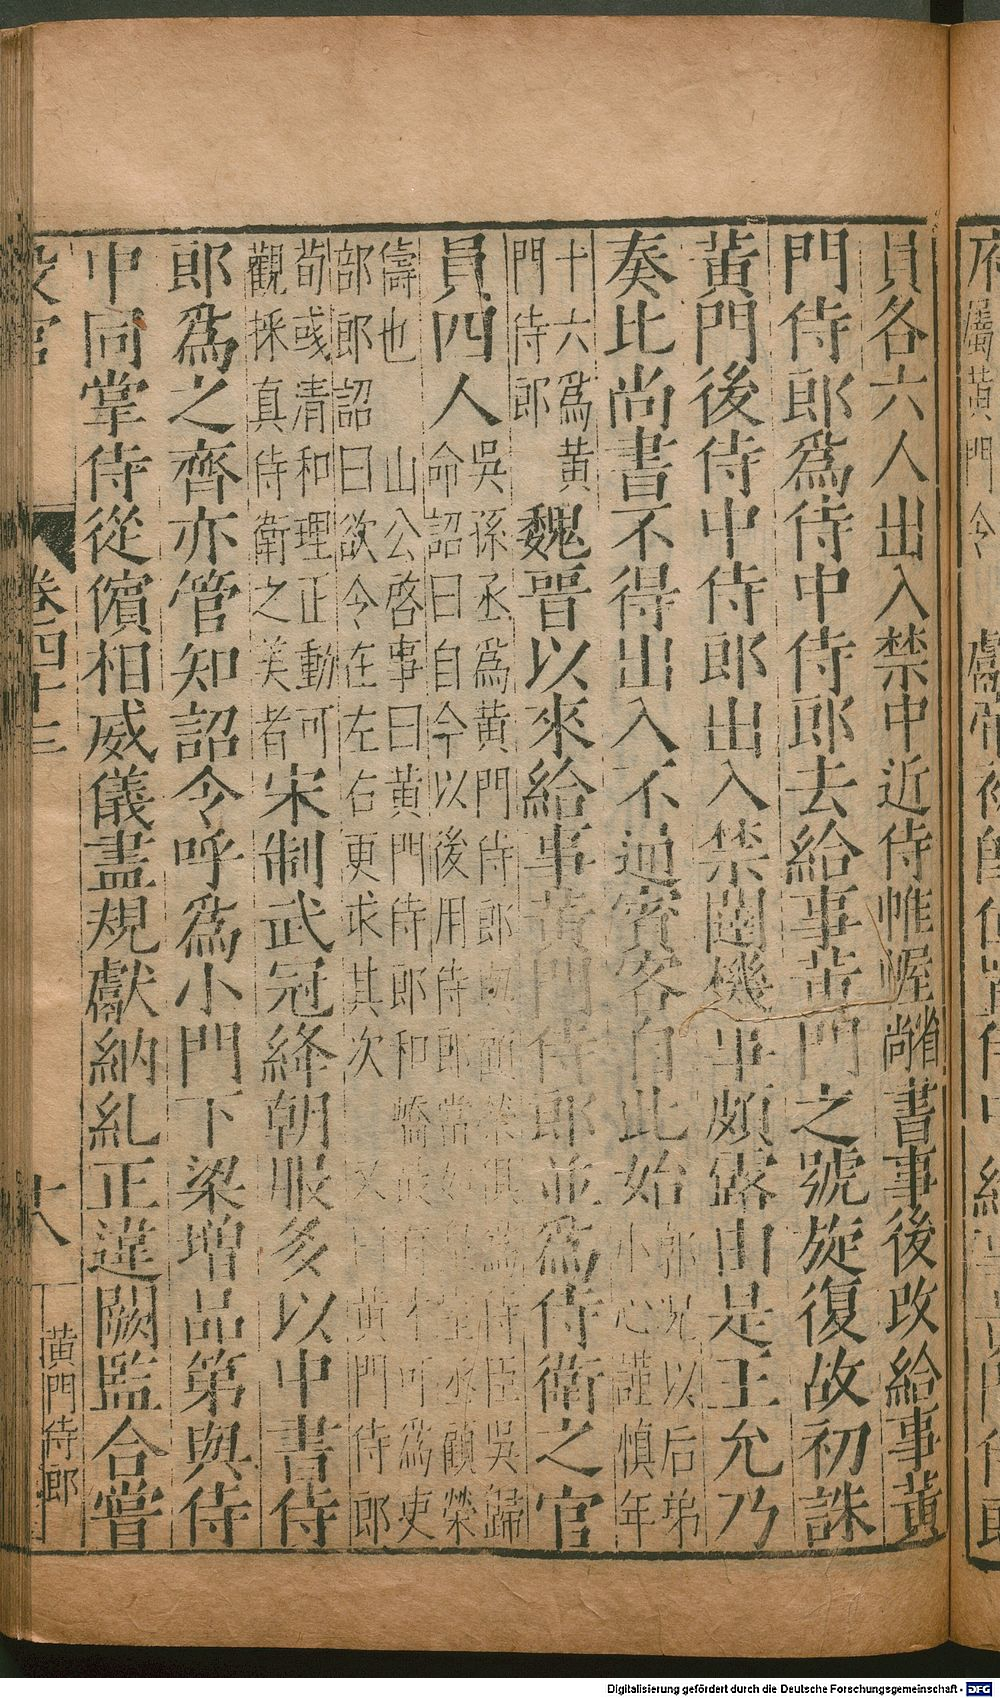 員各六人出入禁中近侍帷幄省尚書事後改給事黃
門侍郎爲侍中侍郎去給事黃門之號旋復故初誅
黃門後侍中侍郎出入禁闈機事頗露由是王允乃
奏比尚書不得出入不通賓客自此始
郭況以后弟
小心謹慎年
十六爲黃
門侍郎
魏晉以來給事黃門侍郎並爲侍衛之官
員四人
吳孫丞爲黃門侍郎與顧榮俱爲侍臣吳歸
命詔曰自今以後用侍郎當如孫丞顧榮
儔也
山公啓事曰黃門侍郎和嶠最有才可爲吏
部郎詔曰欲令在左右更求其次
又曰黃門侍郎
荀彧清和理正動可
觀採真侍衛之美者
宋制武冠絳朝服多以中書侍
郎爲之齊亦管知詔令呼爲小門下梁增品第與侍
中同掌侍從儐相威儀盡規獻納糺正違闕監合嘗
設官
卷四十三
十八
黃門侍郎
府屬黃門令
獻帝初
Digitalisierung gefördert durch die Deutsche Forschungsgemeinschaft - DFG